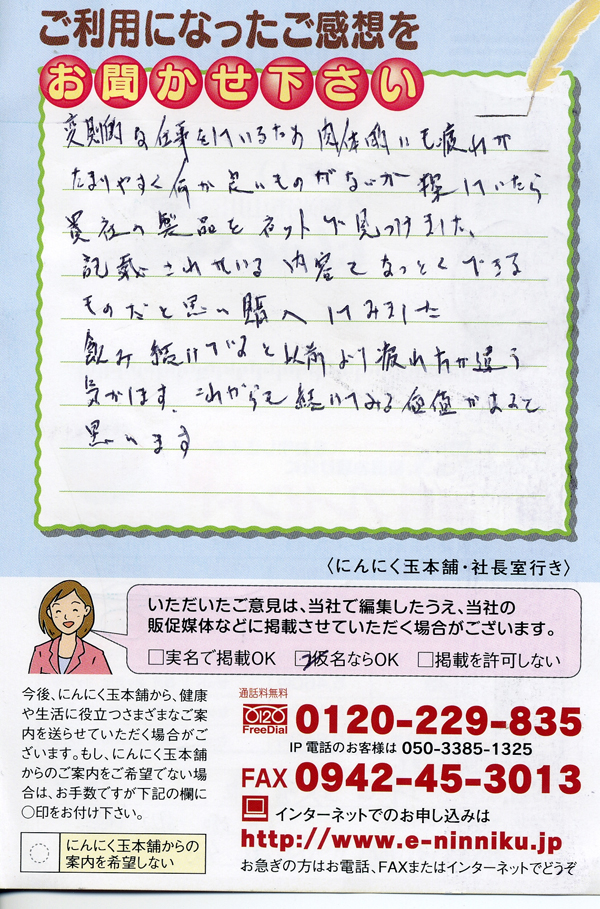 ご利用になったご感想を
お聞かせ下さい
変則的な仕事をしているため肉体的にも疲れが
たまりやすく何か良いものがないか探していたら
貴社の製品をネットで見つけました、
記載されている内容でなっとくできる
ものだと思い購入してみました
飲み続けていると以前より疲れ方が違う
気がします、これからも続けてみる価値があると
思います
〈にんにく玉本舗・社長室行き〉
いただいたご意見は、当社で編集したうえ、当社の
販促媒体などに掲載させていただく場合がございます。
□実名で掲載OK □仮名ならOK □掲載を許可しない
今後、にんにく玉本舗から、健康
や生活に役立つさまざまなご案
内を送らせていただく場合がご
ざいます。もし、にんにく玉本舗
からのご案内をご希望でない場
合は、お手数ですが下記の欄に
○印をお付け下さい。
にんにく玉本舗からの
案内を希望しない
通話料無料
0120
FreeDial
0120-229-835
IP電話のお客様は 050-3385-1325
FAX 0942-45-3013
インターネットでのお申し込みは
http://www.e-ninniku.jp
お急ぎの方はお電話、FAXまたはインターネットでどうぞ